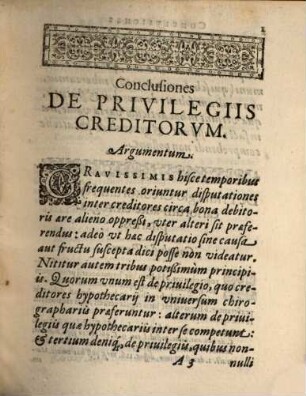 Conclusiones
DE PRIVILEGIIS
CREDITORVM.
Argumentum.
GRAVISSIMIS hisce temporibus
frequentes oriuntur disputationes
inter creditores circa bona debito-
ris ære alieno oppreßi, vter alteri sit præfe-
rendus: adeò vt hac disputatio sine causa
aut fructu suscepta dici posse non videatur.
Nititur autem tribus potißimùm principi-
is. Quorum vnum est de privilegio, quo cre-
ditores hypothecarij in vniversum chiro-
graphariis præferuntur: alterum de privi-
legiis quæ hypothecariis inter se competunt:
& tertium deniq́, de privilegiis, quibus non-
A 3 nulli